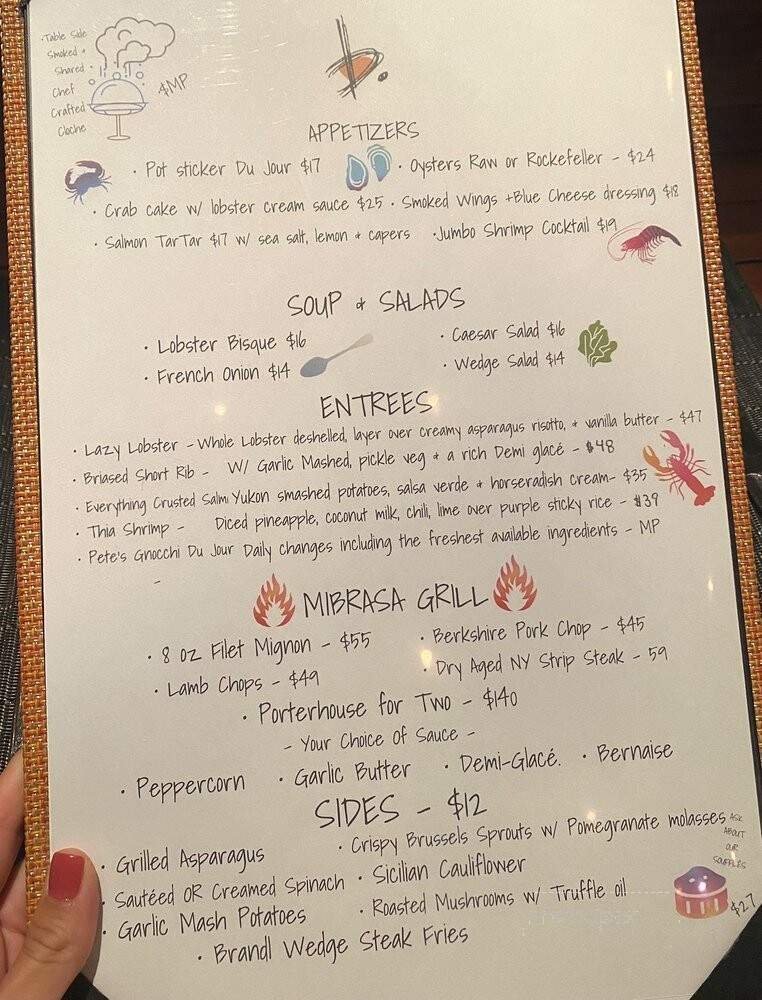 ·Table Side
Smoked +
Shared ·
Chef
Crafted
Cloche
$MP
b.
APPETIZERS
· Pot sticker Du Jour $17 · Oysters Raw or Rockefeller - $24
· Crab cake w/ lobster cream sauce $25 · Smoked Wings +Blue Cheese dressing $18
· Salmon TarTar $17 w/ sea salt, lemon + capers ·Jumbo Shrimp Cocktail $19
SOUP & SALADS
· Lobster Bisque $16 · Caesar Salad $16
· French Onion $14 · Wedge Salad $14
ENTREES
· Lazy Lobster - Whole Lobster deshelled, layer over creamy asparagus risotto, + vanilla butter - $47
· Briased Short Rib - W/ Garlic Mashed, pickle veg + a rich Demi glacé - $48
· Everything Crusted Salm Yukon smashed potatoes, salsa verde + horseradish cream- $35
· Thia Shrimp - Diced pineapple, coconut milk, chili, lime over purple sticky rice - $39
· Pete's Gnocchi Du Jour Daily changes including the freshest available ingredients - MP
-
MIBRASA GRILL
· 8 oz Filet Mignon - $55 · Berkshire Pork Chop - $45
· Lamb Chops - $49 · Dry Aged NY Strip Steak - 59
· Porterhouse for Two - $140
- Your Choice of Sauce -
· Peppercorn · Garlic Butter · Demi-Glacé. · Bernaise
SIDES - $12
· Grilled Asparagus · Crispy Brussels Sprouts w/ Pomegranate molasses
· Sautéed OR Creamed Spinach · Sicilian Cauliflower
· Garlic Mash Potatoes · Roasted Mushrooms w/ Truffle oil
· Brandl Wedge Steak Fries
ASK
ABOUT
OUR
SOUFFLES
$27